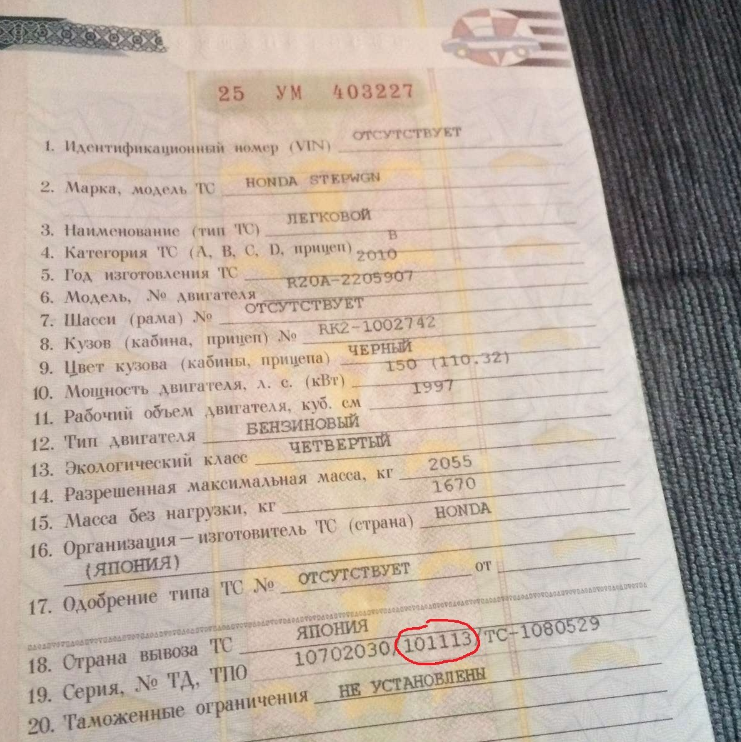 25 УМ 403227
1. Идентификационный номер (VIN) ОТСУТСТВУЕТ
2. Марка, модель ТС HONDA STEPWGN
3. Наименование (тип ТС) ЛЕГКОВОЙ
4. Категория ТС (A, B, C, D, прицеп) B
5. Год изготовления ТС 2010
6. Модель, № двигателя R20A-2205907
7. Шасси (рама) № ОТСУТСТВУЕТ
8. Кузов (кабина, прицеп) № RK2-1002742
9. Цвет кузова (кабины, прицепа) ЧЕРНЫЙ
10. Мощность двигателя, л. с. (кВт) 150 (110.32)
11. Рабочий объем двигателя, куб. см 1997
12. Тип двигателя БЕНЗИНОВЫЙ
13. Экологический класс ЧЕТВЕРТЫЙ
14. Разрешенная максимальная масса, кг 2055
15. Масса без нагрузки, кг 1670
16. Организация—изготовитель ТС (страна) HONDA
(ЯПОНИЯ)
17. Одобрение типа ТС № ОТСУТСТВУЕТ от
18. Страна вывоза ТС ЯПОНИЯ
19. Серия, № ТД, ТПО 10702030/101113/ТС-1080529
20. Таможенные ограничения НЕ УСТАНОВЛЕНЫ